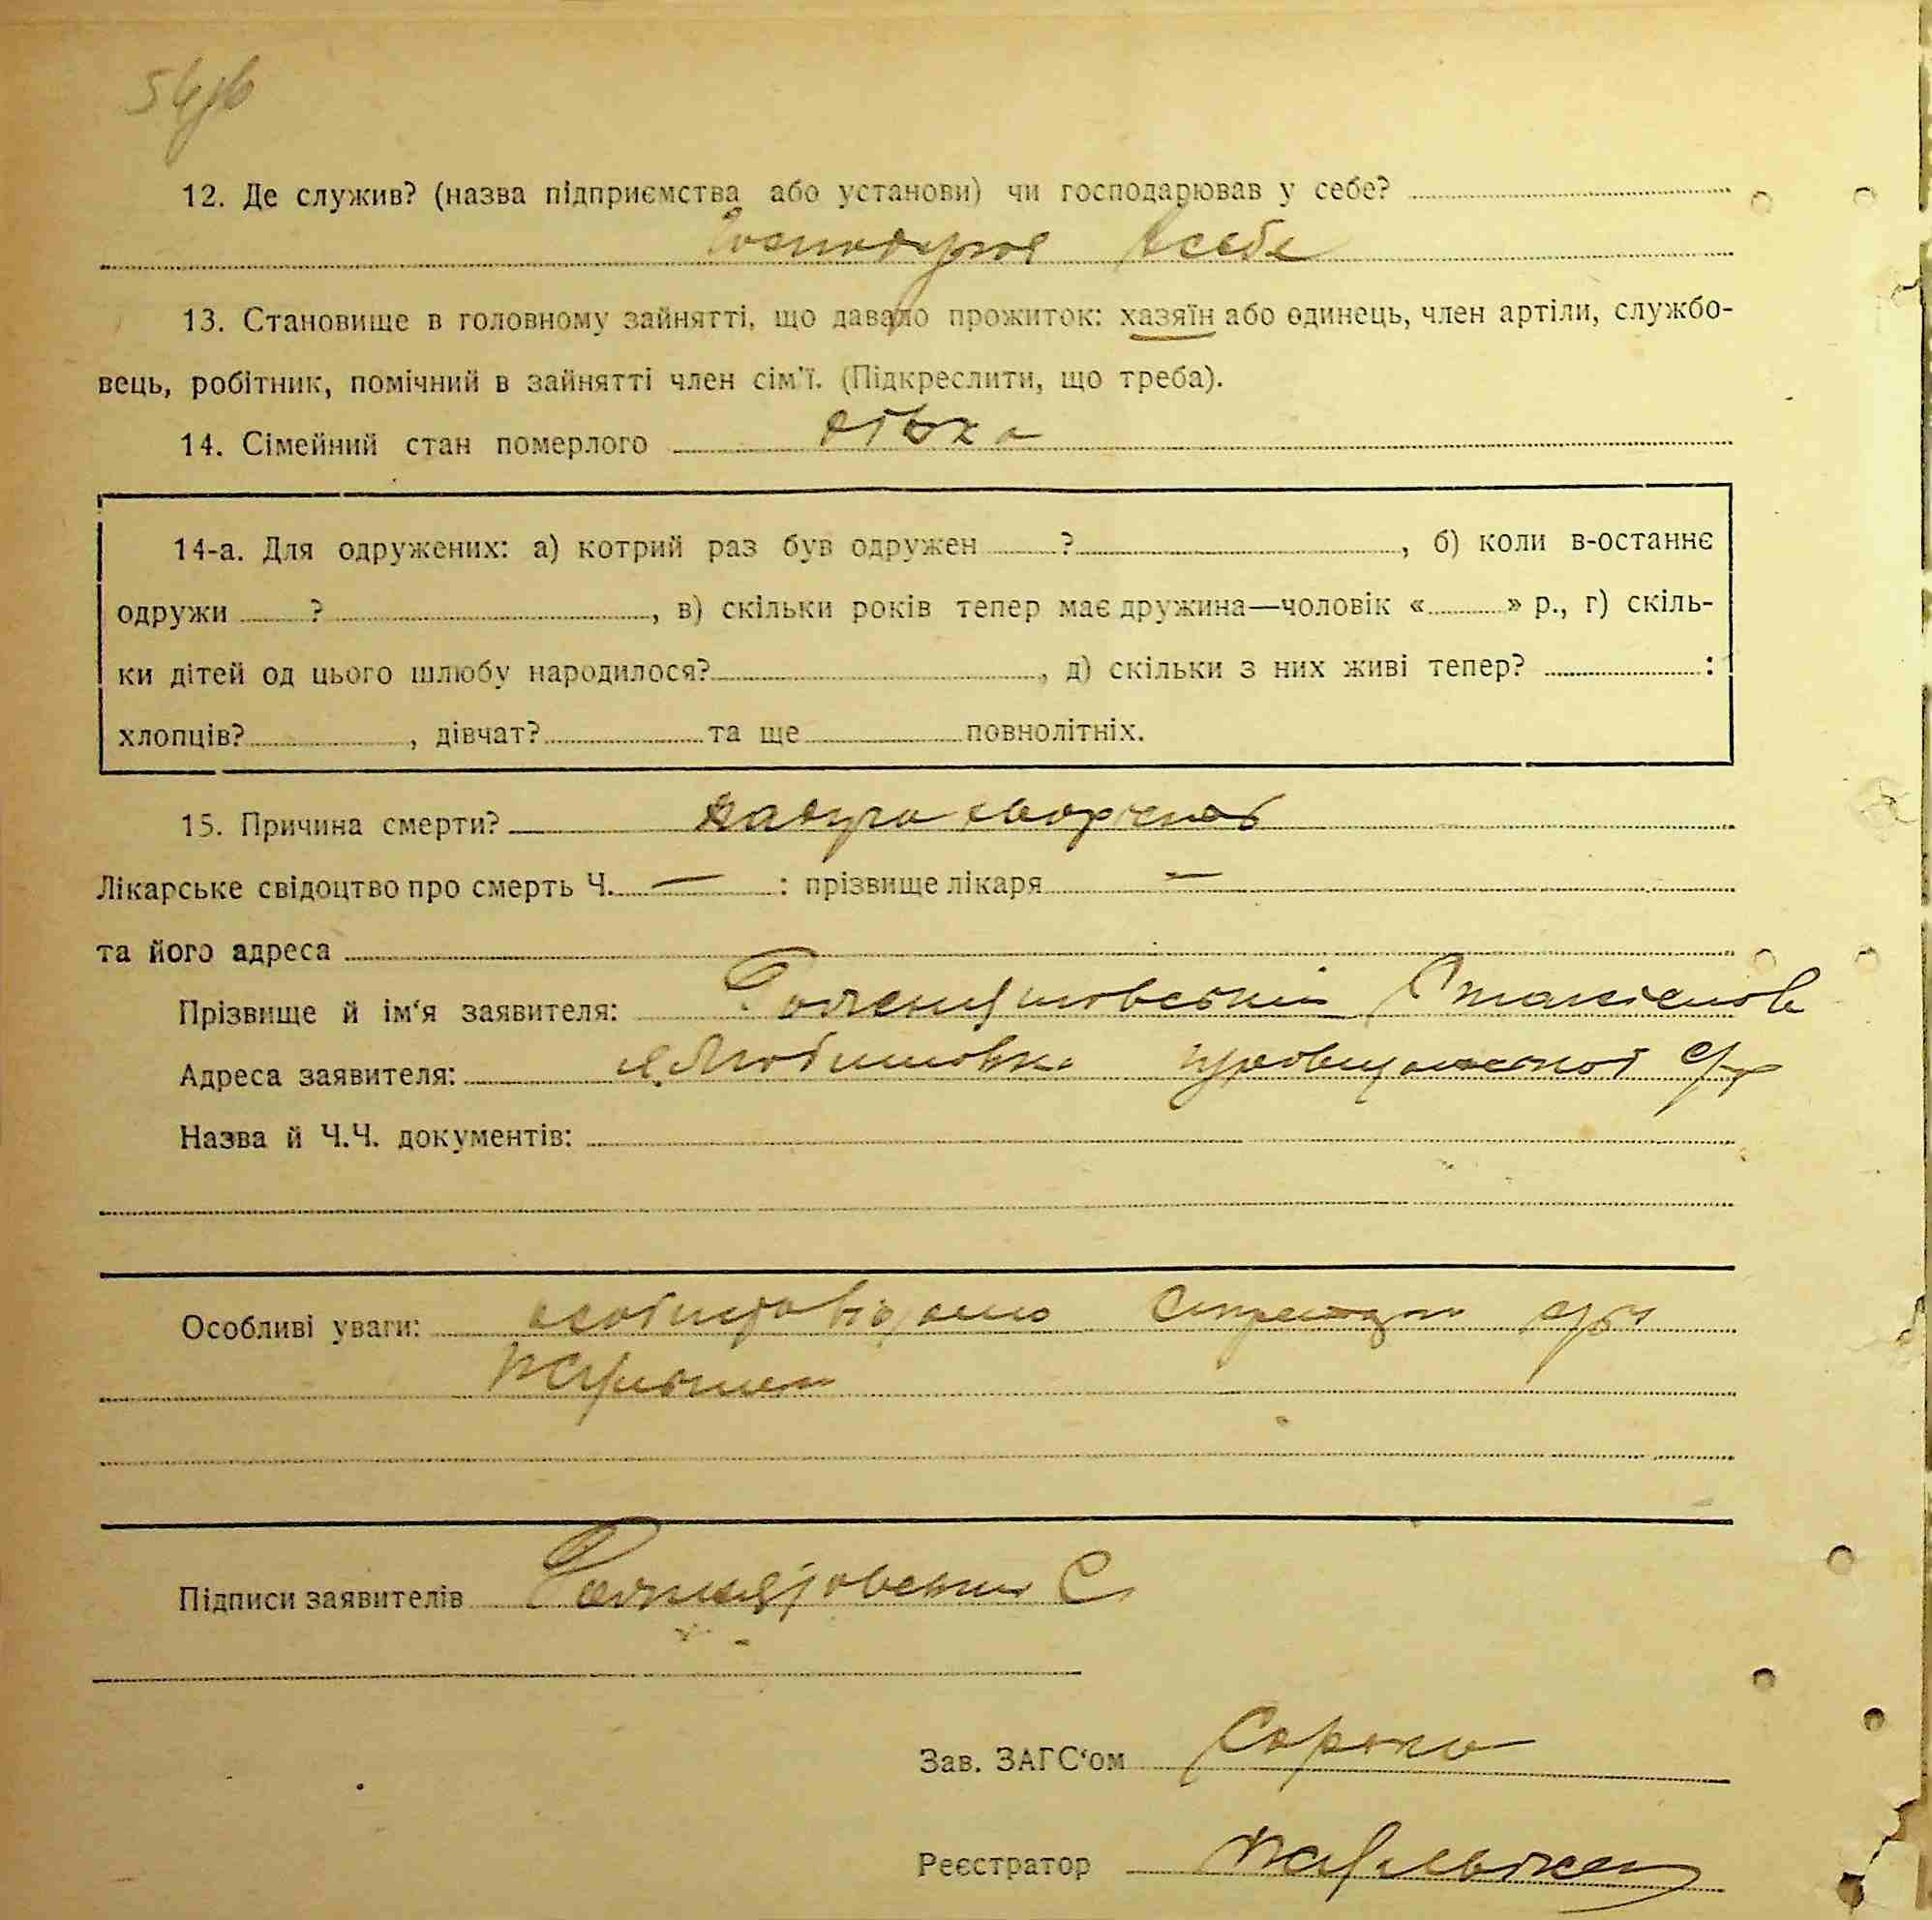 12. Де служив? (назва підприємства або установи) чи господарював у себе?
Господарює в себе
13. Становище в головному зайнятті, що давало прожиток: хазяїн або одинець, член артіли, службо-
вець, робітник, помічний в зайнятті член сім'ї. (Підкреслити, що треба).
14. Сімейний стан померлого дівка
14-а. Для одружених: а) котрий раз був одружен ? , б) коли в-останнє
одружи ? , в) скільки років тепер має дружина—чоловік « » р., г) скіль-
ки дітей од цього шлюбу народилося? , д) скільки з них живі тепер? :
хлопців? , дівчат? та ще повнолітніх.
15. Причина смерти?
Лікарське свідоцтво про смерть Ч. — : прізвище лікаря —
та його адреса
Прізвище й ім‘я заявителя: Станіслав
Адреса заявителя:
Назва й Ч.Ч. документів:
Особливі уваги:
Підписи заявителів С
Зав. ЗАГС‘ом Сорока
Реєстратор